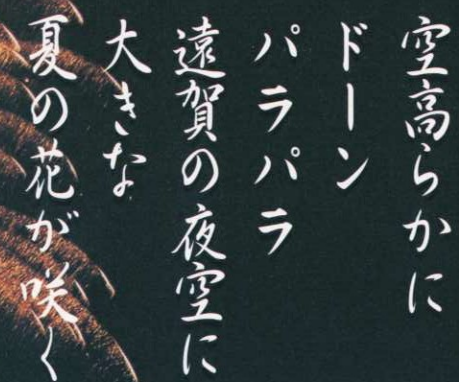 空高らかに
ドーン
パラパラ
遠賀の夜空に
大きな
夏の花が咲く